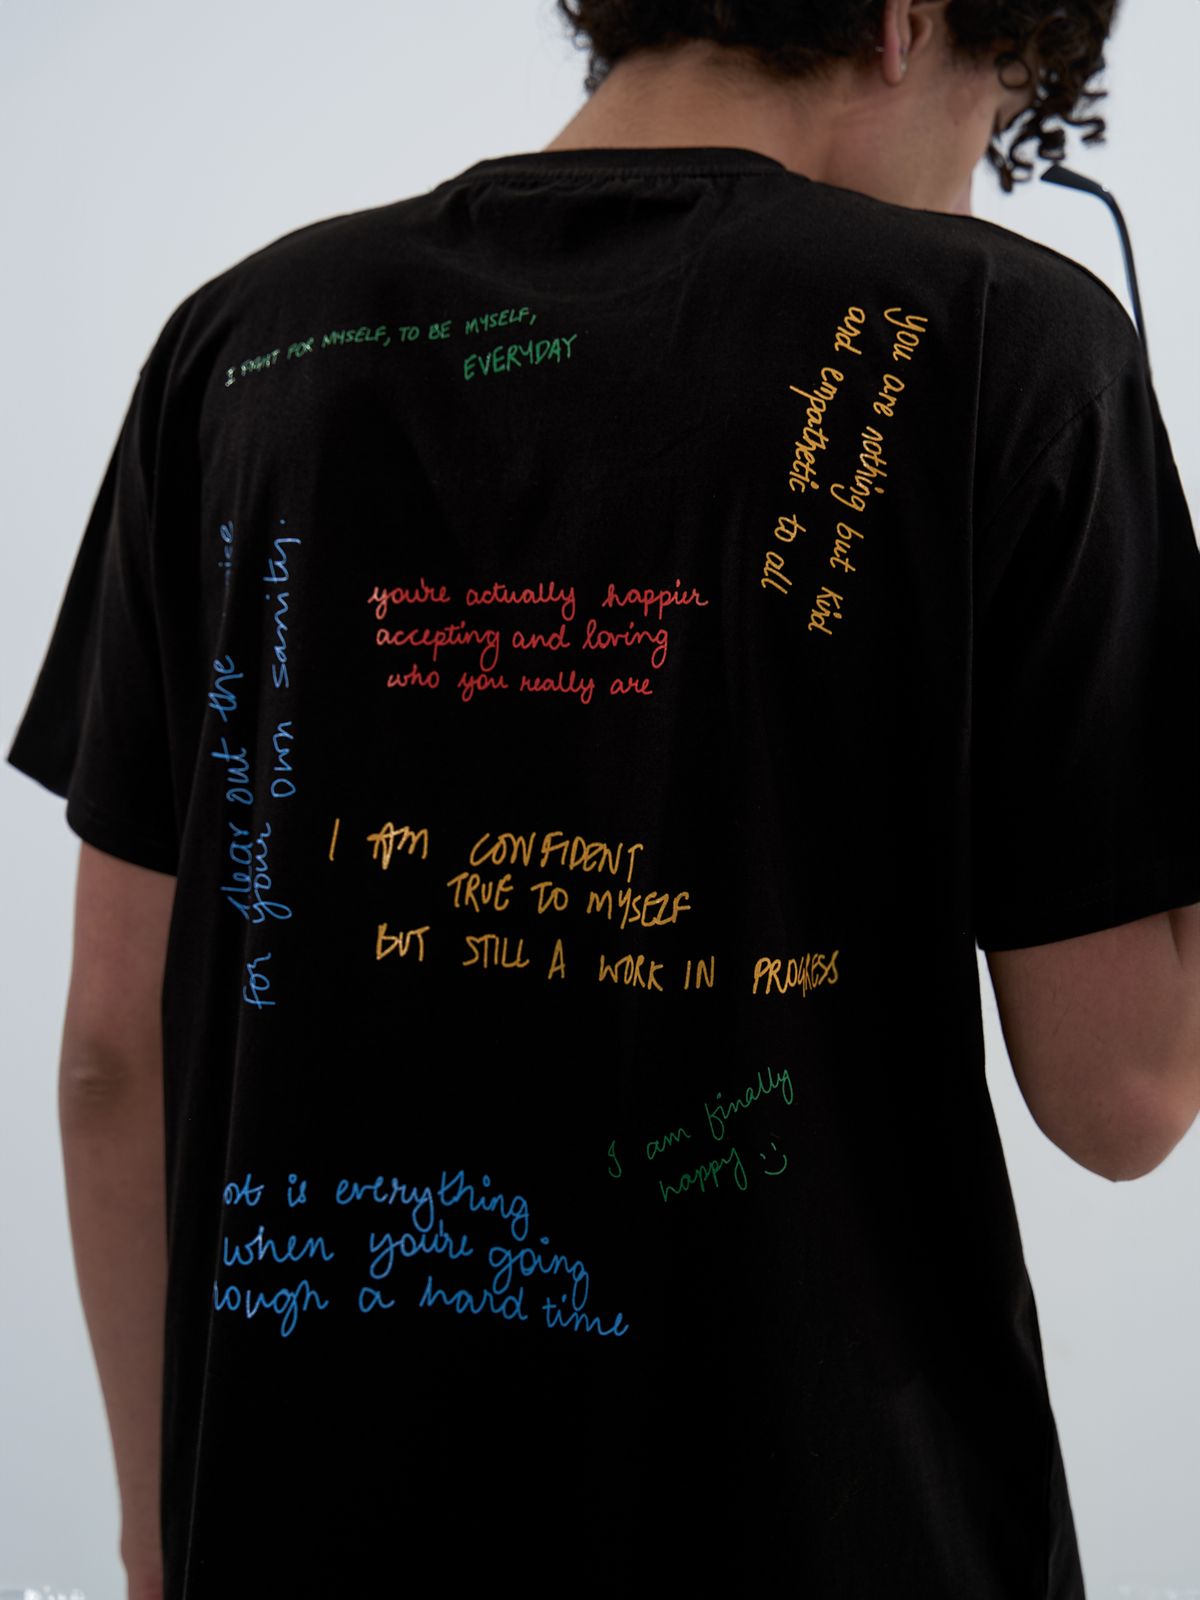 I FIGHT FOR MYSELF, TO BE MYSELF,
EVERYDAY
you are nothing but kind
and empathetic to all
clear out the
for your own sanity.
you're actually happier
accepting and loving
who you really are
I AM CONFIDENT
TRUE TO MYSELF
BUT STILL A WORK IN PROGRESS
I am finally
happy
is everything
when you're going
a hard time